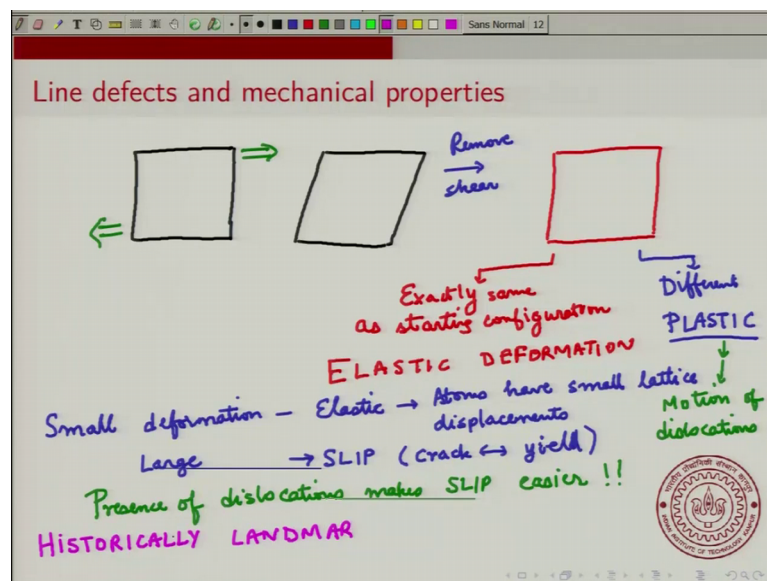 T
Sans Normal 12
Line defects and mechanical properties
Remove
shear
Exactly same
as starting configuration
ELASTIC DEFORMATION
Different
PLASTIC
Motion of
dislocations
Small deformation – Elastic → Atoms have small lattice
displacements
Large → SLIP (crack ↔ yield)
Presence of dislocations makes SLIP easier !!
HISTORICALLY LANDMAR
INDIAN INSTITUTE OF TECHNOLOGY KANPUR